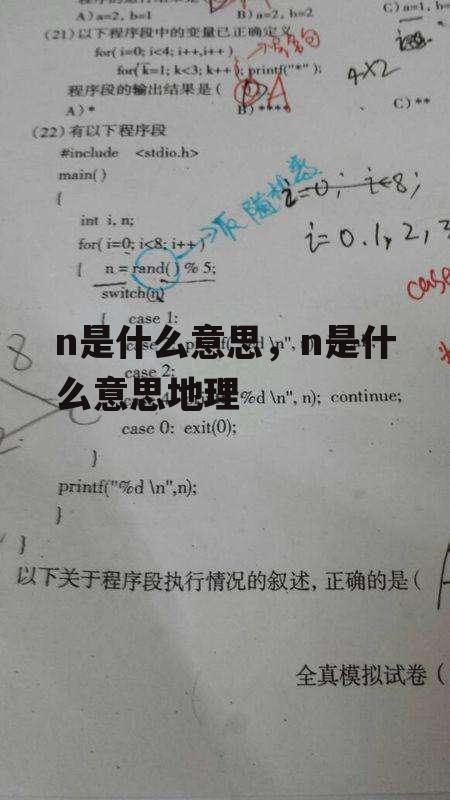 A) a=2, b=1 B) a=2, b=2 C) a=1, b=
(21) 以下程序段中的变量已正确定义
for( i=0; i<4; i++,i++ )
for( k=1; k<3; k++ ); printf("*" );
程序段的输出结果是 (
4×2
A) * B) **** C) **
(22) 有以下程序段
#include <stdio.h>
main( )
{
i=0; i<8;
int i, n;
for( i=0; i<8; i++ )
i=0.1,2,3
{ n = rand( ) % 5;
case
switch(n)
{ case 1:
n是什么意思，n是什
case 2:
么意思地理
%d \n", n); continue;
case 0: exit(0);
}
printf("%d \n",n);
}
}
以下关于程序段执行情况的叙述, 正确的是 (
全真模拟试卷 (